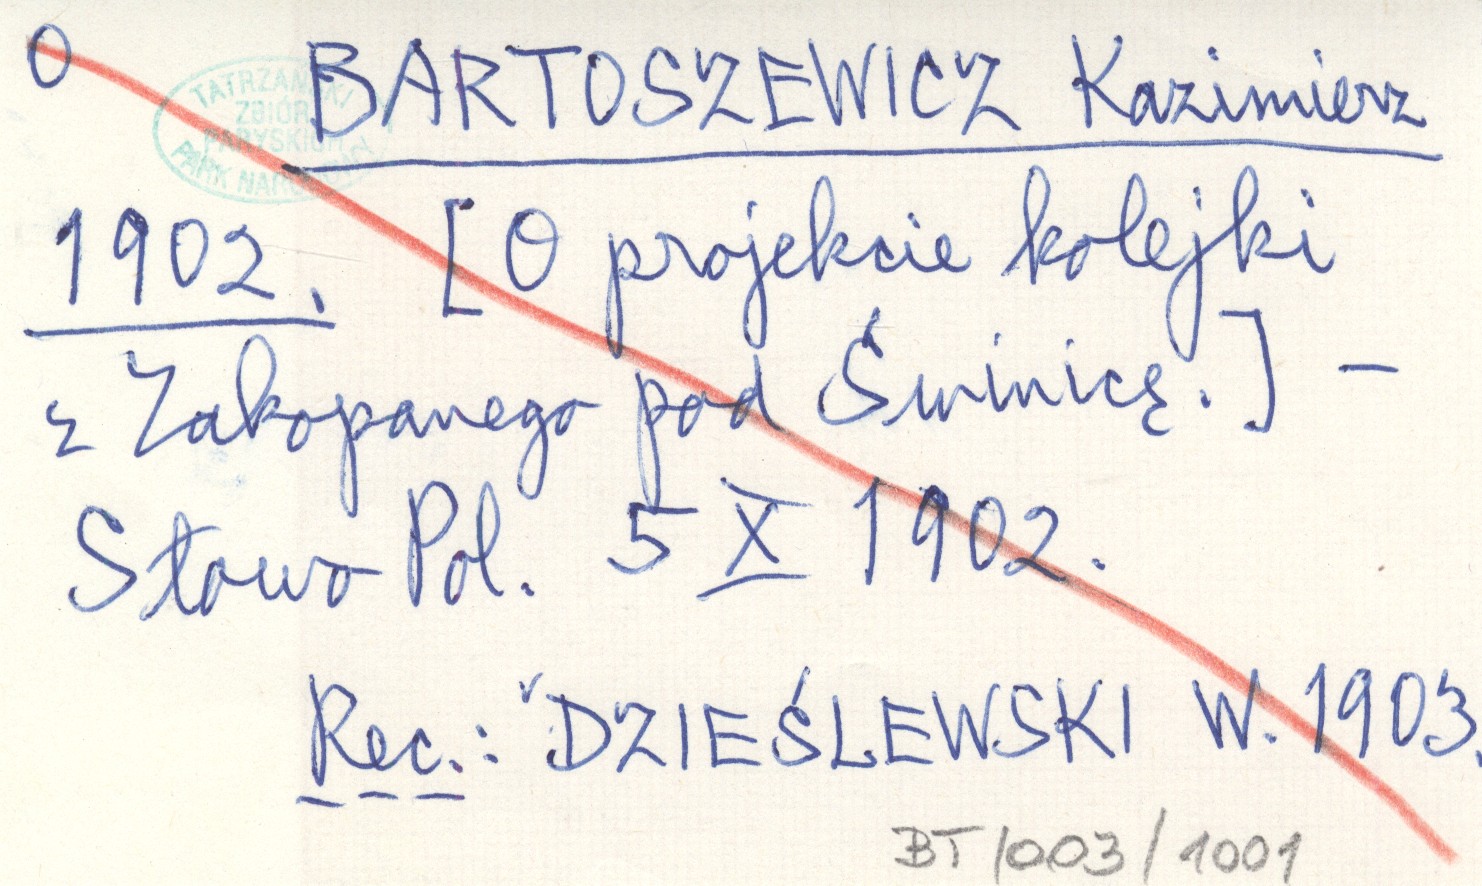 O BARTOSZEWICZ Kazimierz
TATRZAŃSKI
ZBIÓR
PARYSKICH
PARK NARODOWY
1902. [O projekcie kolejki
z Zakopanego pod Świnicę.] –
Słowo Pol. 5 X 1902.
Rec.: DZIEŚLEWSKI W. 1903.
BT/003/1001